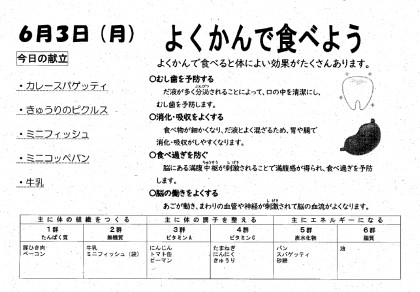 6月3日（月）
今日の献立
・カレースパゲッティ
・きゅうりのピクルス
・ミニフィッシュ
・ミニコッペパン
・牛乳
よくかんで食べよう
よくかんで食べると体によい効果がたくさんあります。
○むし歯を予防する
だ液が多く分泌されることによって、口の中を清潔にし、
むし歯を予防します。
○消化・吸収をよくする
食べ物が細かくなり、だ液とよく混ざるため、胃や腸で
消化・吸収がしやすくなります。
○食べ過ぎを防ぐ
脳にある満腹中枢が刺激されることで満腹感が得られ、食べ過ぎを予防
します。
○脳の働きをよくする
あごが動き、まわりの血管や神経が刺激されて脳の血流がよくなります。
主に体の組織をつくる 主に体の調子を整える 主にエネルギーになる
1群 2群 3群 4群 5群 6群
たんぱく質 無機質 ビタミンA ビタミンC 炭水化物 脂質
豚ひき肉 牛乳 にんじん たまねぎ パン 油
ベーコン ミニフィッシュ（袋） トマト缶 にんにく スパゲッティ
ピーマン きゅうり 砂糖